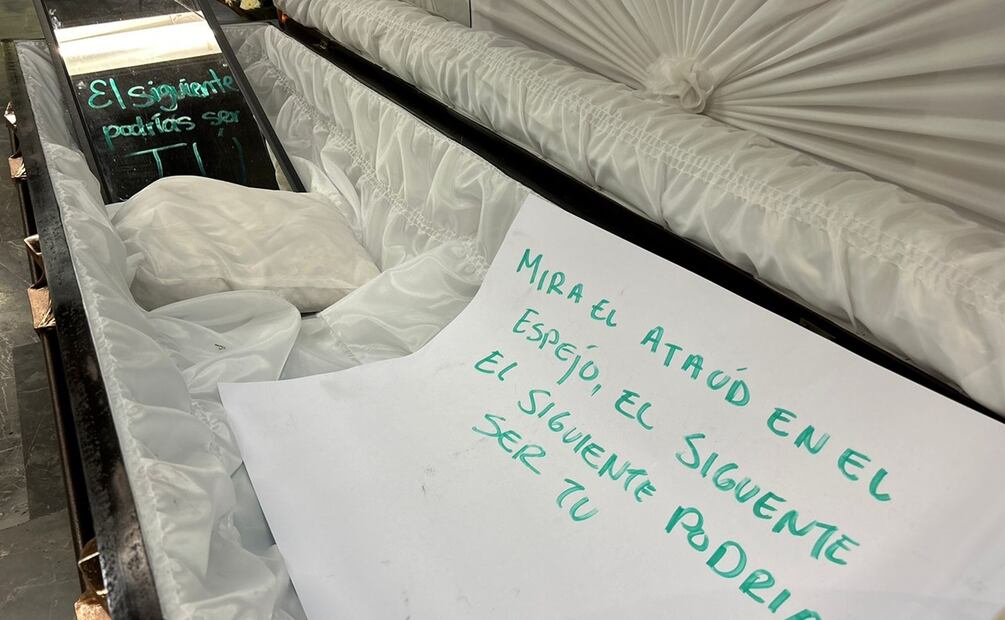 El siguiente
podrías ser
TU
MIRA EL ATAÚD EN EL
ESPEJO, EL SIGUENTE
EL SIGUIENTE PODRIA
SER TU